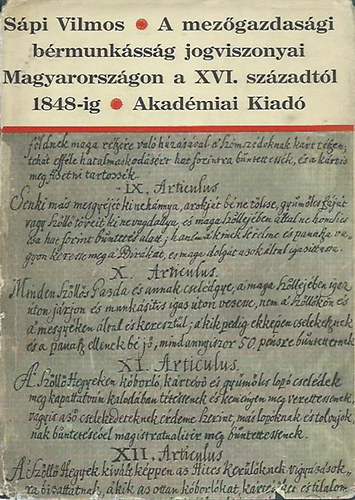 Sápi Vilmos • A mezőgazdasági
bérmunkásság jogviszonyai
Magyarországon a XVI. századtól
1848-ig • Akadémiai Kiadó
földnek maga részére való húzásásal a Szomszédoknak kárt tészen,
tehát efféle hatalmaskodásért hat forintra büntettessék, és a kárt is
megfizetni tartossék.
IX. Articulus.
Senki más mesgyéjét ki ne hánnya, árokját bé ne töltse, gyümölcs fáját
vagy Szöllő töveit ki ne vagdallya, és maga szöllejében által ne homlics
sa hat forint büntetés alatt; hanem a kinek kérdése és panasza va-
gyon keresse meg a Birákat, és maga dolgát azok által igazittassa.
X. Articulus.
Minden Szöllős Gazda és annak cselédgye, a maga Szöllejében igaz
úton járjon és munkásit is igas úton vezesse, nem a Szöllőkön és
a mesgyéken által és keresztül; a kik pedig ekképen cselekesznek
és a panasz ellenek bé jő, mindannyiszor 50 pénzre büntettessenek
XI. Articulus.
A Szöllő Hegyeken kóborló, kártévő és gyümölcs lopó cselédek
megkapattatván kalodában tétessenek és keményen meg verettessenek,
vagy is a só cselekedeteknek érdeme szerint, más lopóknak és tolvajok-
nak büntetésével magistratualiter meg büntettessenek.
XII. Articulus
A Szöllő Hegyek kiváltképpen az Hites Kerülőknek vigyázások-
ra bizattatnak, a kik az ottan kóborlókat, kártévőket és tilalom